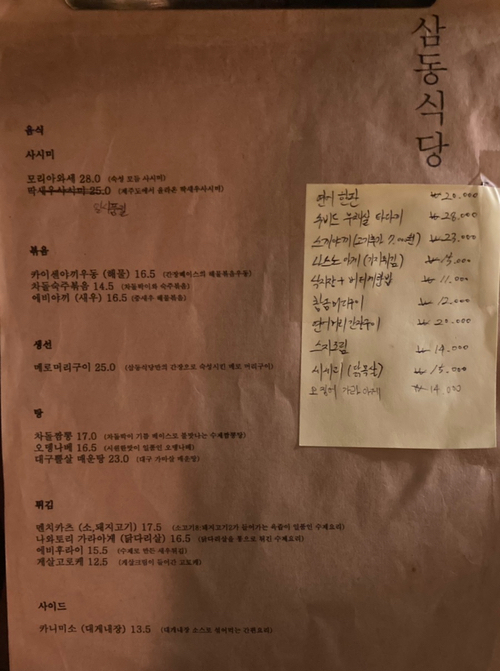 삼동식당
음식
사시미
모리아와세 28.0 (숙성 모듬 사시미)
딱새우사시미 25.0 (제주도에서 올라온 딱새우사시미)
일시품절
볶음
카이센야끼우동 (해물) 16.5 (간장베이스의 해물볶음우동)
차돌숙주볶음 14.5 (차돌박이와 숙주볶음)
에비야끼 (새우) 16.5 (중새우 해물볶음)
생선
메로머리구이 25.0 (삼동식당만의 간장으로 숙성시킨 메로 머리구이)
탕
차돌짬뽕 17.0 (차돌박이 기름 베이스로 불맛나는 수제짬뽕탕)
오뎅나베 16.5 (시원한맛이 일품인 오뎅나베)
대구뽈살 매운탕 23.0 (대구 가마살 매운탕)
튀김
멘치카츠 (소,돼지고기) 17.5 (소고기8:돼지고기2가 들어가는 육즙이 일품인 수제요리)
나와토리 가라아게 (닭다리살) 16.5 (닭다리살을 통으로 튀긴 수제요리)
에비후라이 15.5 (수제로 만든 새우튀김)
게살고로케 12.5 (게살크림이 들어간 고로케)
사이드
카니미소 (대게내장) 13.5 (대게내장 소스로 볶아먹는 간편요리)
연어 한판 ₩ 20.000
수비드 부채살 타다끼 ₩ 28.000
스키야끼 (고기추가 7.000원) ₩ 23.000
₩ 15.000
₩ 11.000
₩ 12.000
연어머리 간장구이 ₩ 20.000
스지조림 ₩ 14.000
시샤모 ₩ 15.000
가라아게 ₩ 14.000